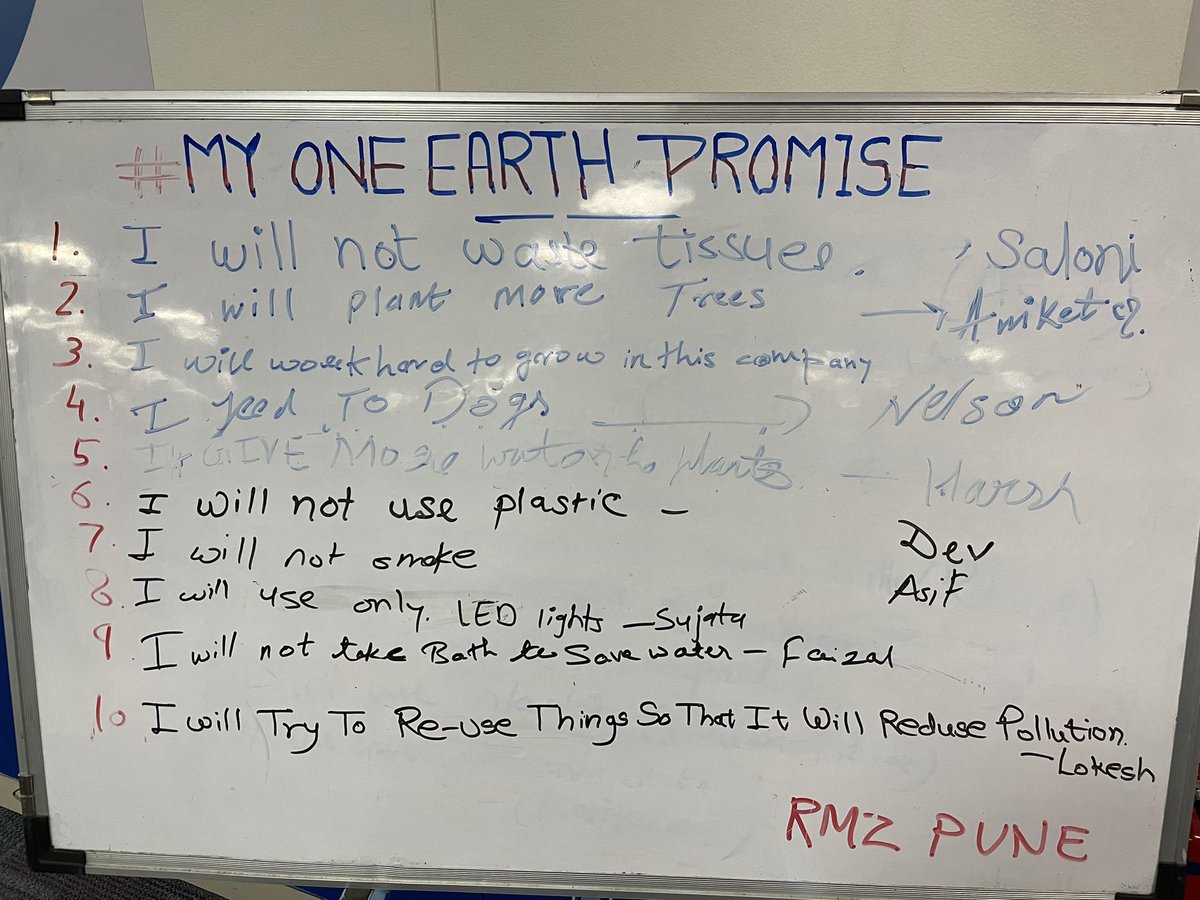 #MY ONE EARTH PROMISE
1. I will not waste tissues. Saloni
2. I will plant more Trees → Aniket
3. I will work hard to grow in this company
4. I feed To Dogs → Nelson
5. GIVE More water to plants - Harsh
6. I will not use plastic - Dev
7. I will not smoke Asif
8. I will use only. LED lights - Sujata
9 I will not take Bath to Save water - Faizal
10 I will Try To Re-use Things So That It Will Reduse Pollution.
- Lokesh
RMZ PUNE